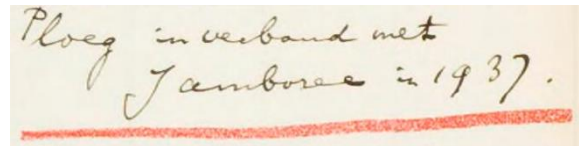 Ploeg in verband met
Jamboree in 1937.